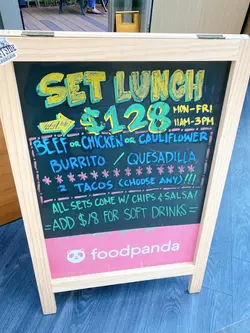 SET LUNCH
$128
MON-FRI
11AM-3PM
BEEF OR CHICKEN OR CAULIFLOWER
BURRITO / QUESADILLA
2 TACOS (CHOOSE ANY)!!!
ALL SETS COME W/ CHIPS & SALSA!
=ADD $18 FOR SOFT DRINKS=
foodpanda